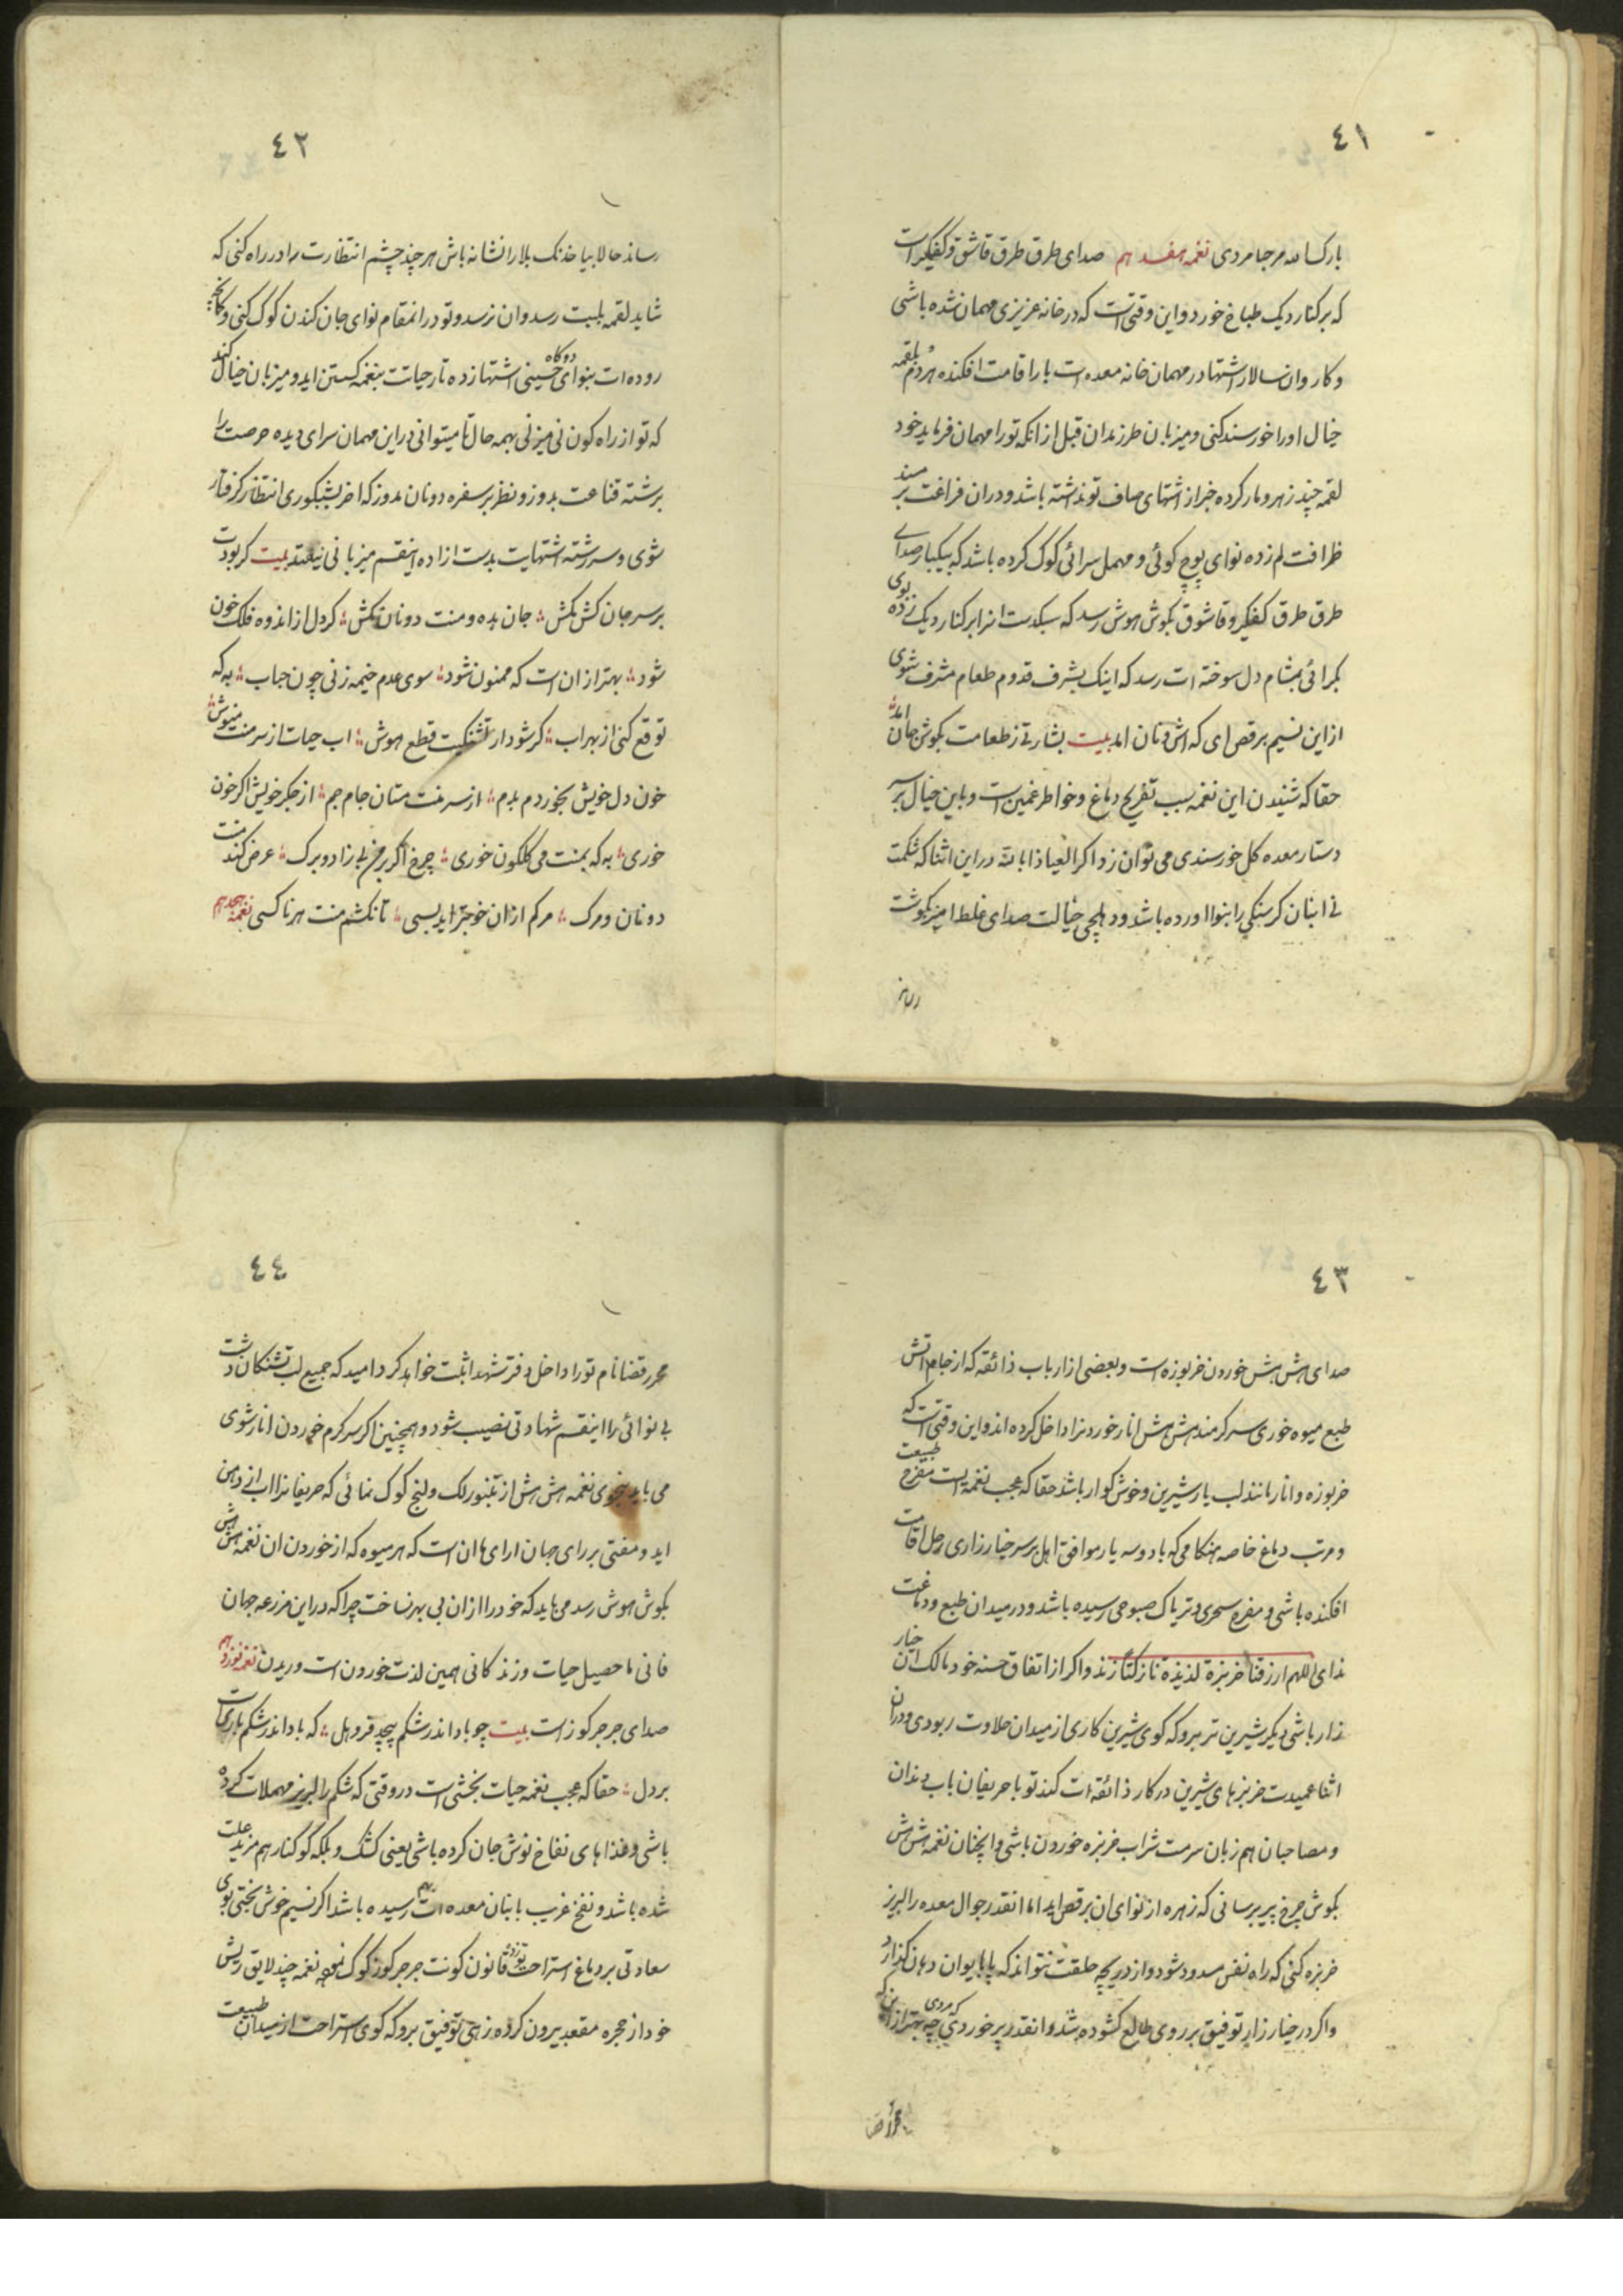 ٤١
بارک الله مرحبا مردی نغمه هفدهم صدای طرق طرق قاشق و کفگیر است
که بر کنار دیک طباخ خورد و این وقتی است که در خانه عزیزی مهمان شده باشی
و کاروان سالار اشتها در مهمان خانه معده ات بار اقامت افکنده هر دم بلقمه
خیال او را خورسند کنی و میزبان طرز بدان قبل از انکه تو را مهمان فرماید خود
لقمه چند زهر و مار کرده خبر از اشتهای صاف تو نداشته باشد و دران فراغت بر مسند
ظرافت لم زده نوای پوچ کوئی و مهمل سرائی کوک کرده باشد که بیکبار صدای
طرق طرق کفکیر و قاشوق بکوش هوش رسد که بیکدست انرا بر کنار دیک زده بوی
کبرائی بمشام دل سوخته ات رسد که اینک بشرف قدوم طعام مشرف شوی
از این نسیم برقص ای که اش و نان امد بیت بشارتی ز طعامت بکوش جان امد
حقا که شنیدن این نغمه سبب تفریح دماغ و خواطر غمین است و باین خیال بر سر
دستار معده کل خورسندی می توان زد اکر العیاذا بالله در این اثنا که شکمت
نی انبان کرسنکی را بنوا اورده باشد و دهلچی خیالت صدای غلط امیز بکوشت
رساند
٤٢
رساند حالا بیا خدنک بلا را نشانه باش هر چند چشم انتظارت را در راه کنی که
شاید لقمه بلبت رسد و ان نرسد و تو در انمقام نوای جان کندن کوک کنی و کمانچه
روده ات بنوای حسینی دوکاه اشتها زده تار حیاتت بنغمه کستن اید و میزبان خیال کند
که تو از راه کون نی میزنی بهمه حال تا میتوانی در این مهمان سرای دیده حرصت را
برشته قناعت بدوز و نظر بر سفره دونان مدوز که اخر بشبکوری انتظار کرفتار
شوی و سر رشته اشتهایت بدست ازاده اینقسم میزبانی نیفتد بیت کر بودت
بر سر جان کش مکش جان بده و منت دونان مکش کر دل از اندوه فلک خون
شود بهتر ازان است که ممنون شود سوی عدم خیمه زنی چون حباب به که
توقع کنی از بهر اب کر شود از تشنکیت قطع هوش اب حیات از سر منت منیوش
خون دل خویش بخور دم بدم از سر منت مستان جام جم از جکر خویش اکر خون
خوری به که بمنت می کلکون خوری چرخ اکر بر من بی زاد و برک عرض کند منت
دونان و مرک مرکم ازان خوجتر اید بسی تا نکشم منت هر ناکسی نغمه هجدهم
٤٣
صدای هش هش خوردن خربوزه است و بعضی از ارباب ذائقه که از جام اتش
طبع میوه خوری سر کرمند هش هش انار خوردنرا داخل کرده اند و این وقتی است که
خربوزه و انار مانند لب یار شیرین و خوش کوار باشد حقا که عجب نغمه ایست مفرح طبیعت
و مرتب دماغ خاصه هنکامی که با دو سه یار موافق اهل بر سر خیار زاری رحل اقامت
افکنده باشی و مفرح سحری و تریاک صبوحی رسیده باشد و در میدان طبع و دماغت
ندای اللهم ارزقنا خربزة لذیذة نازکتا زند و اکر از اتفاق حسنه خود مالک ان خیار
زار باشی دیکر شیرین تر برو که کوی شیرین کاری از میدان حلاوت ربودی و دران
اثنا عمیدت خربزهای شیرین در کار ذائقه ات کند تو با حریفان باب دندان
و مصاحبان هم زبان سرمست شراب خربزه خوردن باشی و انچنان نغمه هش هش
بکوش چرخ پیر برسانی که زهره از نوای ان برقص اید اما انقدر جوال معده را لبریز
خربزه کنی که راه نفس مسدود شود و از دریچه حلقت نتواند که پا بایوان دهان کذارد
و اکر در خیار زار توفیق بر روی طالع کشوده شد و انقدر پر خوردی که مردی چه بهتر از این که
محرر قضا
٤٤
محرر قضا نام تو را داخل دفتر شهدا ثبت خواهد کرد امید که جمیع لب تشنکان دشت
بی نوائی را اینقسم شهادتی نصیب شود و همچنین اکر سر کرم خوردن انار شوی
می باید بنحوی نغمه هش هش از تنبور لک و لنج کوک نمائی که حریفانرا اب از دهن
اید و مفتی بر رای جهان ارای ما ان است که هر میوه که از خوردن ان نغمه هش هش
بکوش هوش رسد می باید که خود را ازان بی بهر نساخت چرا که در این مزرعه جهان
فانی ما حصیل حیات و زندکانی همین لذت خوردن است و ریدن نغمه نوزدهم
صدای جرجر کوز است بیت چو باد اندر شکم پیچد فرو هل که باد اندر شکم باریست
بر دل حقا که عجب نغمه حیات بخشی است در وقتی که شکم را لبریز مهملات کرده
باشی و غذاهای نفاخ نوش جان کرده باشی یعنی کشک و بلکه کوکنار هم مزید علت
شده باشد و نفخ غریب بانبان معده ات بهم رسیده باشد اکر نسیم خوش بختی بوی
سعادتی بر دماغ استراحت تو زد قانون کونت جرجر کوز کوک نموده نغمه چند لایق ریش
خود از حجره مقعد بیرون کرده زهی توفیق برو که کوی استراحت از میدان طبیعت